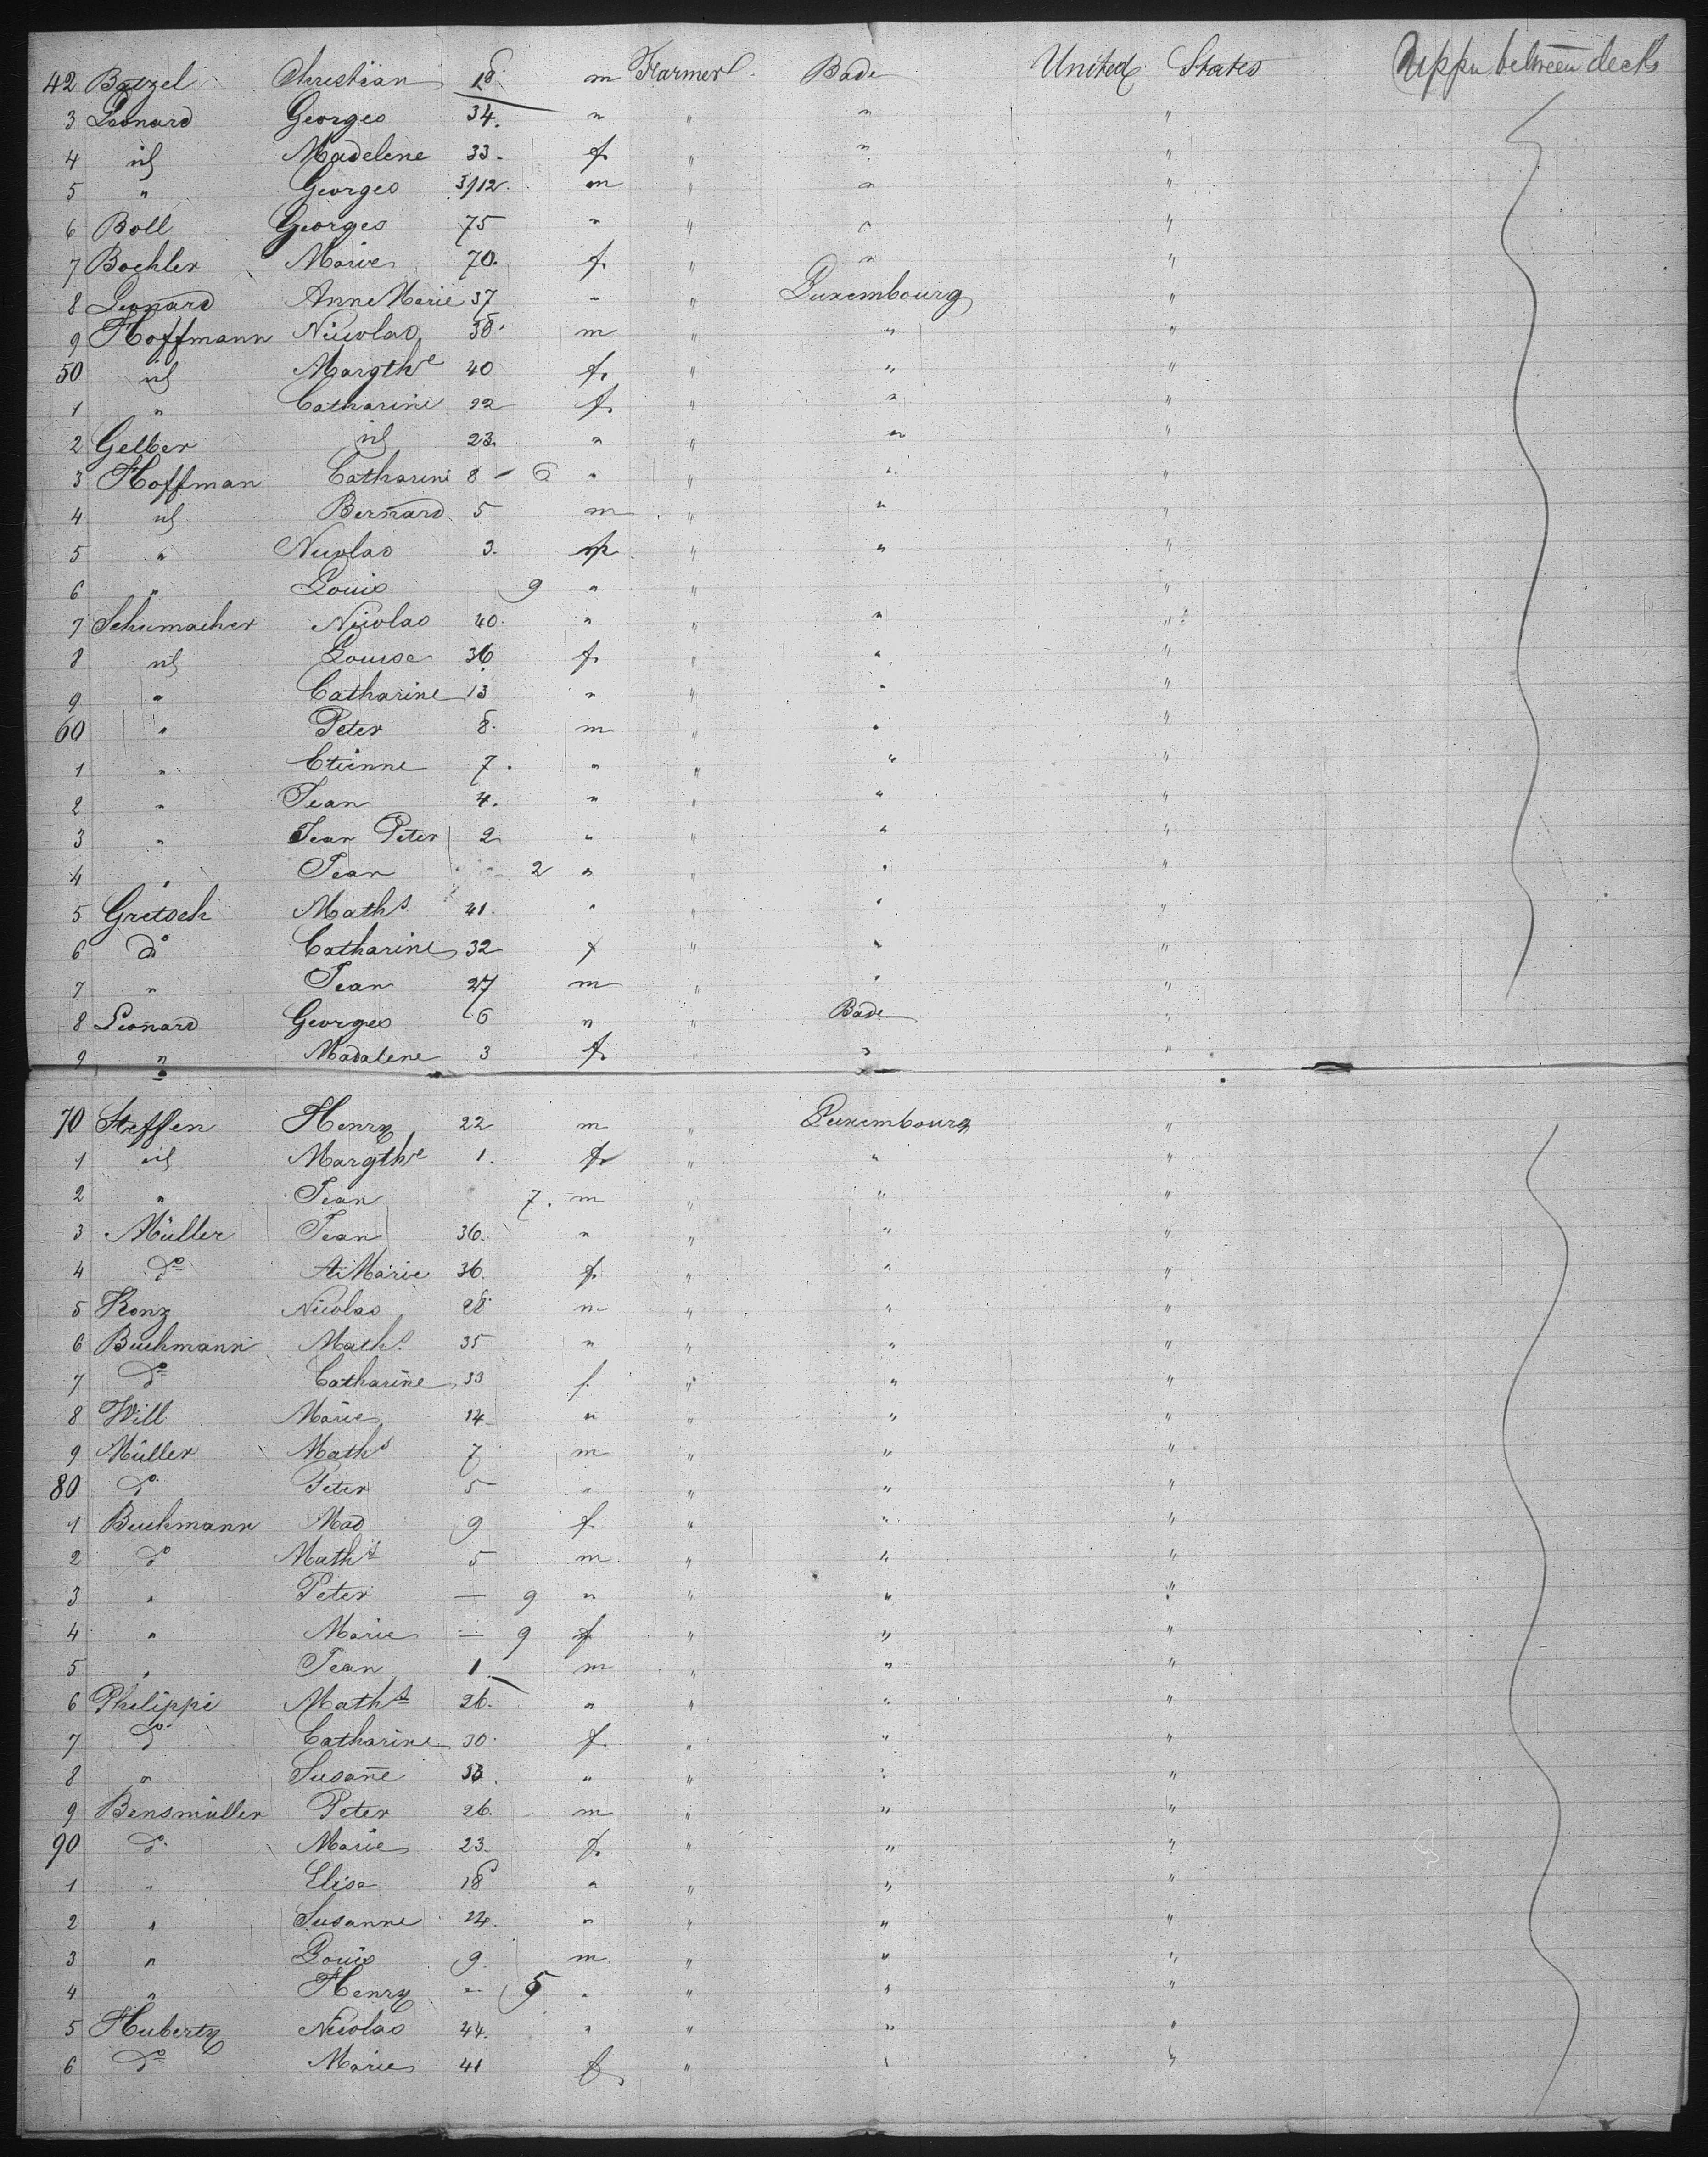 42 Batzel Christian 18 m Farmer Bade United States Upper between decks
3 Leonard Georges 34. " " " "
4 id Madelene 33. f " " "
5 " Georges 3/12 m " " "
6 Boll Georges 75 " " " "
7 Boehler Marie 70. f " " "
8 Leonard Anne Marie 37 " " Luxembourg "
9 Hoffmann Nicolas 38 m " " "
50 id Margthe 40 f " " "
1 " Catharine 22 f " " "
2 Gelber id 23. " " " "
3 Hoffman Catharine 8 - 6 " " " "
4 id Bernard 5 m " " "
5 " Nicolas 3. m " " "
6 " Louis 9 " " " "
7 Schumacher Nicolas 40. " " " "
8 id Louise 36 f " " "
9 " Catharine 13 " " " "
60 " Peter 8. m " " "
1 " Etienne 7. " " " "
2 " Jean 4. " " " "
3 " Jean Peter 2 " " " "
4 " Jean - 2 " " " "
5 Gretsch Maths 41. " " " "
6 do Catharine 32 f " " "
7 " Jean 27 m " " "
8 Leonard Georges 6 " " Bade "
9 " Madalene 3 f " " "
70 Steffen Henry 22 m " Luxembourg "
1 id Margthe 1. f " " "
2 " Jean 7. m " " "
3 Müller Jean 36. " " " "
4 do A. Marie 36. f " " "
5 Konz Nicolas 28 m " " "
6 Buchmann Maths 35 " " " "
7 do Catharine 33 f. " " "
8 Will Marie 14 " " " "
9 Müller Maths 7 m " " "
80 do Peter 5 " " " "
1 Buchmann Mad 9 f " " "
2 do Maths 5 m. " " "
3 " Peter — 9 " " " "
4 " Marie — 9 f " " "
5 " Jean 1. m " " "
6 Philippi Maths 26. " " " "
7 do Catharine 30. f. " " "
8 " Susanne " " " "
9 Bensmüller Peter 26. m " " "
90 do Marie 23. f. " " "
1 " Elise 18 " " " "
2 " Susanne 24. " " " "
3 " Louis 9. m. " " "
4 " Henry - 5 " " " "
5 Huberty Nicolas 44. " " " "
6 do Marie 41 f " " "